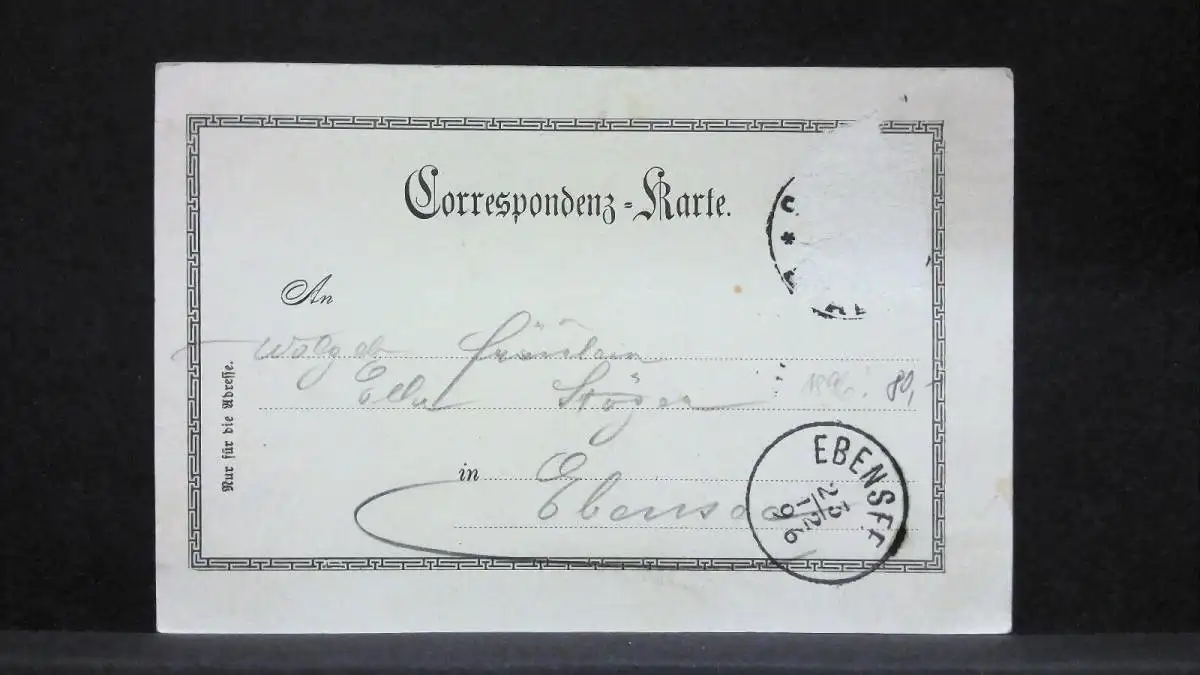 Correspondenz-Karte.
An
Wolgeb Fräulein
Ella Stöger
1896. 80,-
in Ebensee
Nur für die Adresse.
EBENSEE
25
12
96